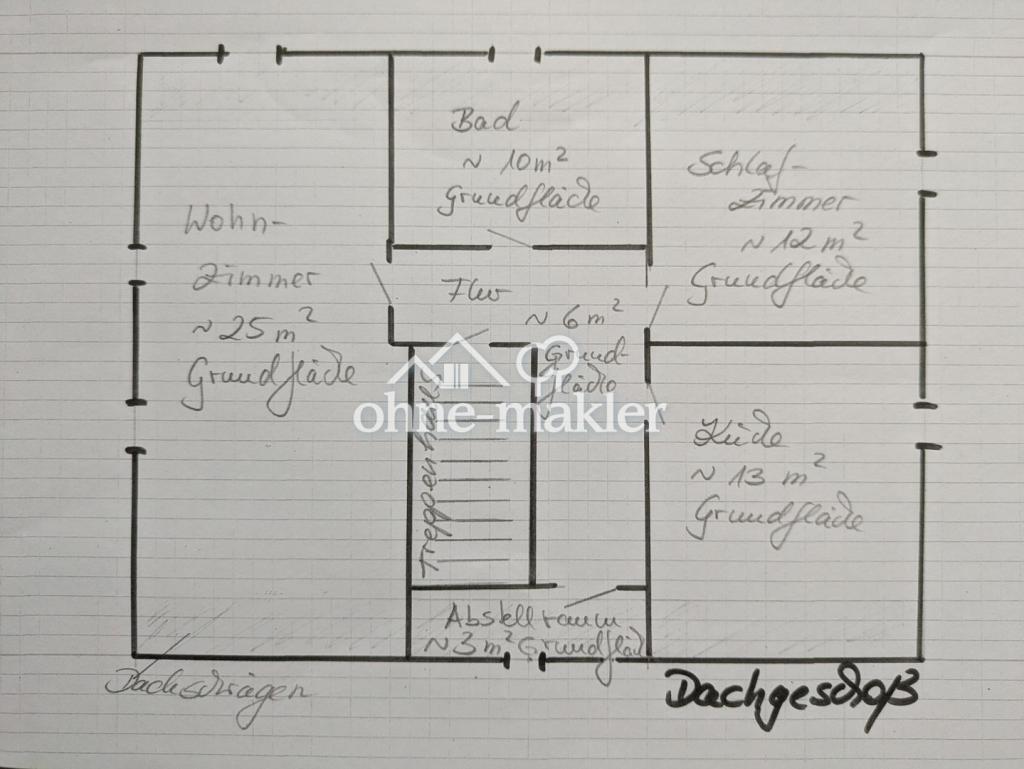 Bad
~ 10m²
Grundfläche
Schlaf-
zimmer
~ 12 m²
Grundfläche
Wohn-
zimmer
~ 25 m²
Grundfläche
Flur
~ 6 m²
Grund-
fläche
Treppenhaus
ohne-makler
Küche
~ 13 m²
Grundfläche
Abstellraum
~ 3 m² Grundfläch
Dachschrägen
Dachgeschoß